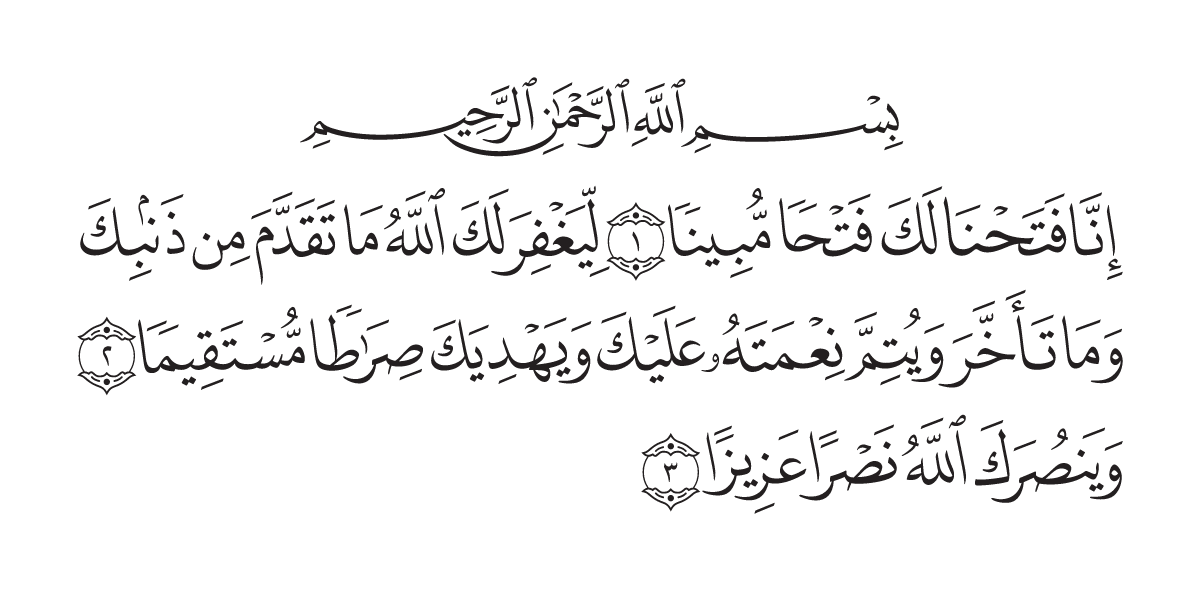 بِسْمِ ٱللَّهِ ٱلرَّحْمَٰنِ ٱلرَّحِيمِ
إِنَّا فَتَحْنَا لَكَ فَتْحًا مُّبِينًا ١ لِّيَغْفِرَ لَكَ ٱللَّهُ مَا تَقَدَّمَ مِن ذَنۢبِكَ
وَمَا تَأَخَّرَ وَيُتِمَّ نِعْمَتَهُۥ عَلَيْكَ وَيَهْدِيَكَ صِرَٰطًا مُّسْتَقِيمًا ٢
وَيَنصُرَكَ ٱللَّهُ نَصْرًا عَزِيزًا ٣